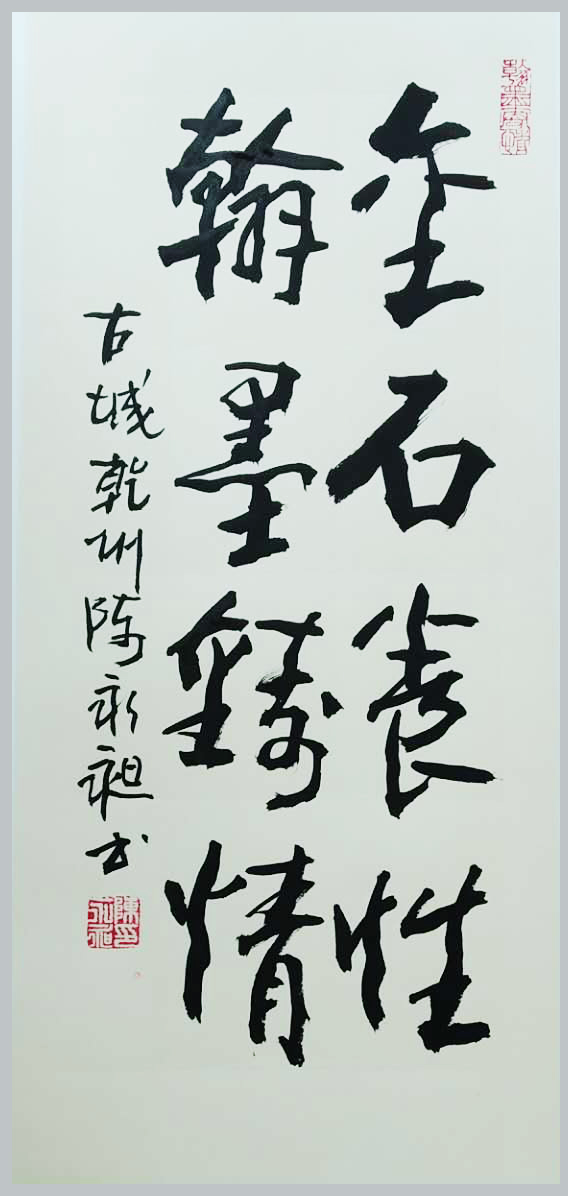 金石養性
翰墨鑄情
古城乾州陈永昶书